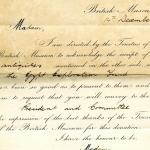 British Museum
14th December
Madam,
I am directed by the Trustees of
British Museum to acknowledge the receipt of
antiquities mentioned on the other side,
the Egypt Exploration Fund
been so good as to present to them; and
to request that you will convey to the
President and Committee
the expression of the best thanks of the Trustees
of the British Museum for this donation.
I have the honour to be,
Madam,